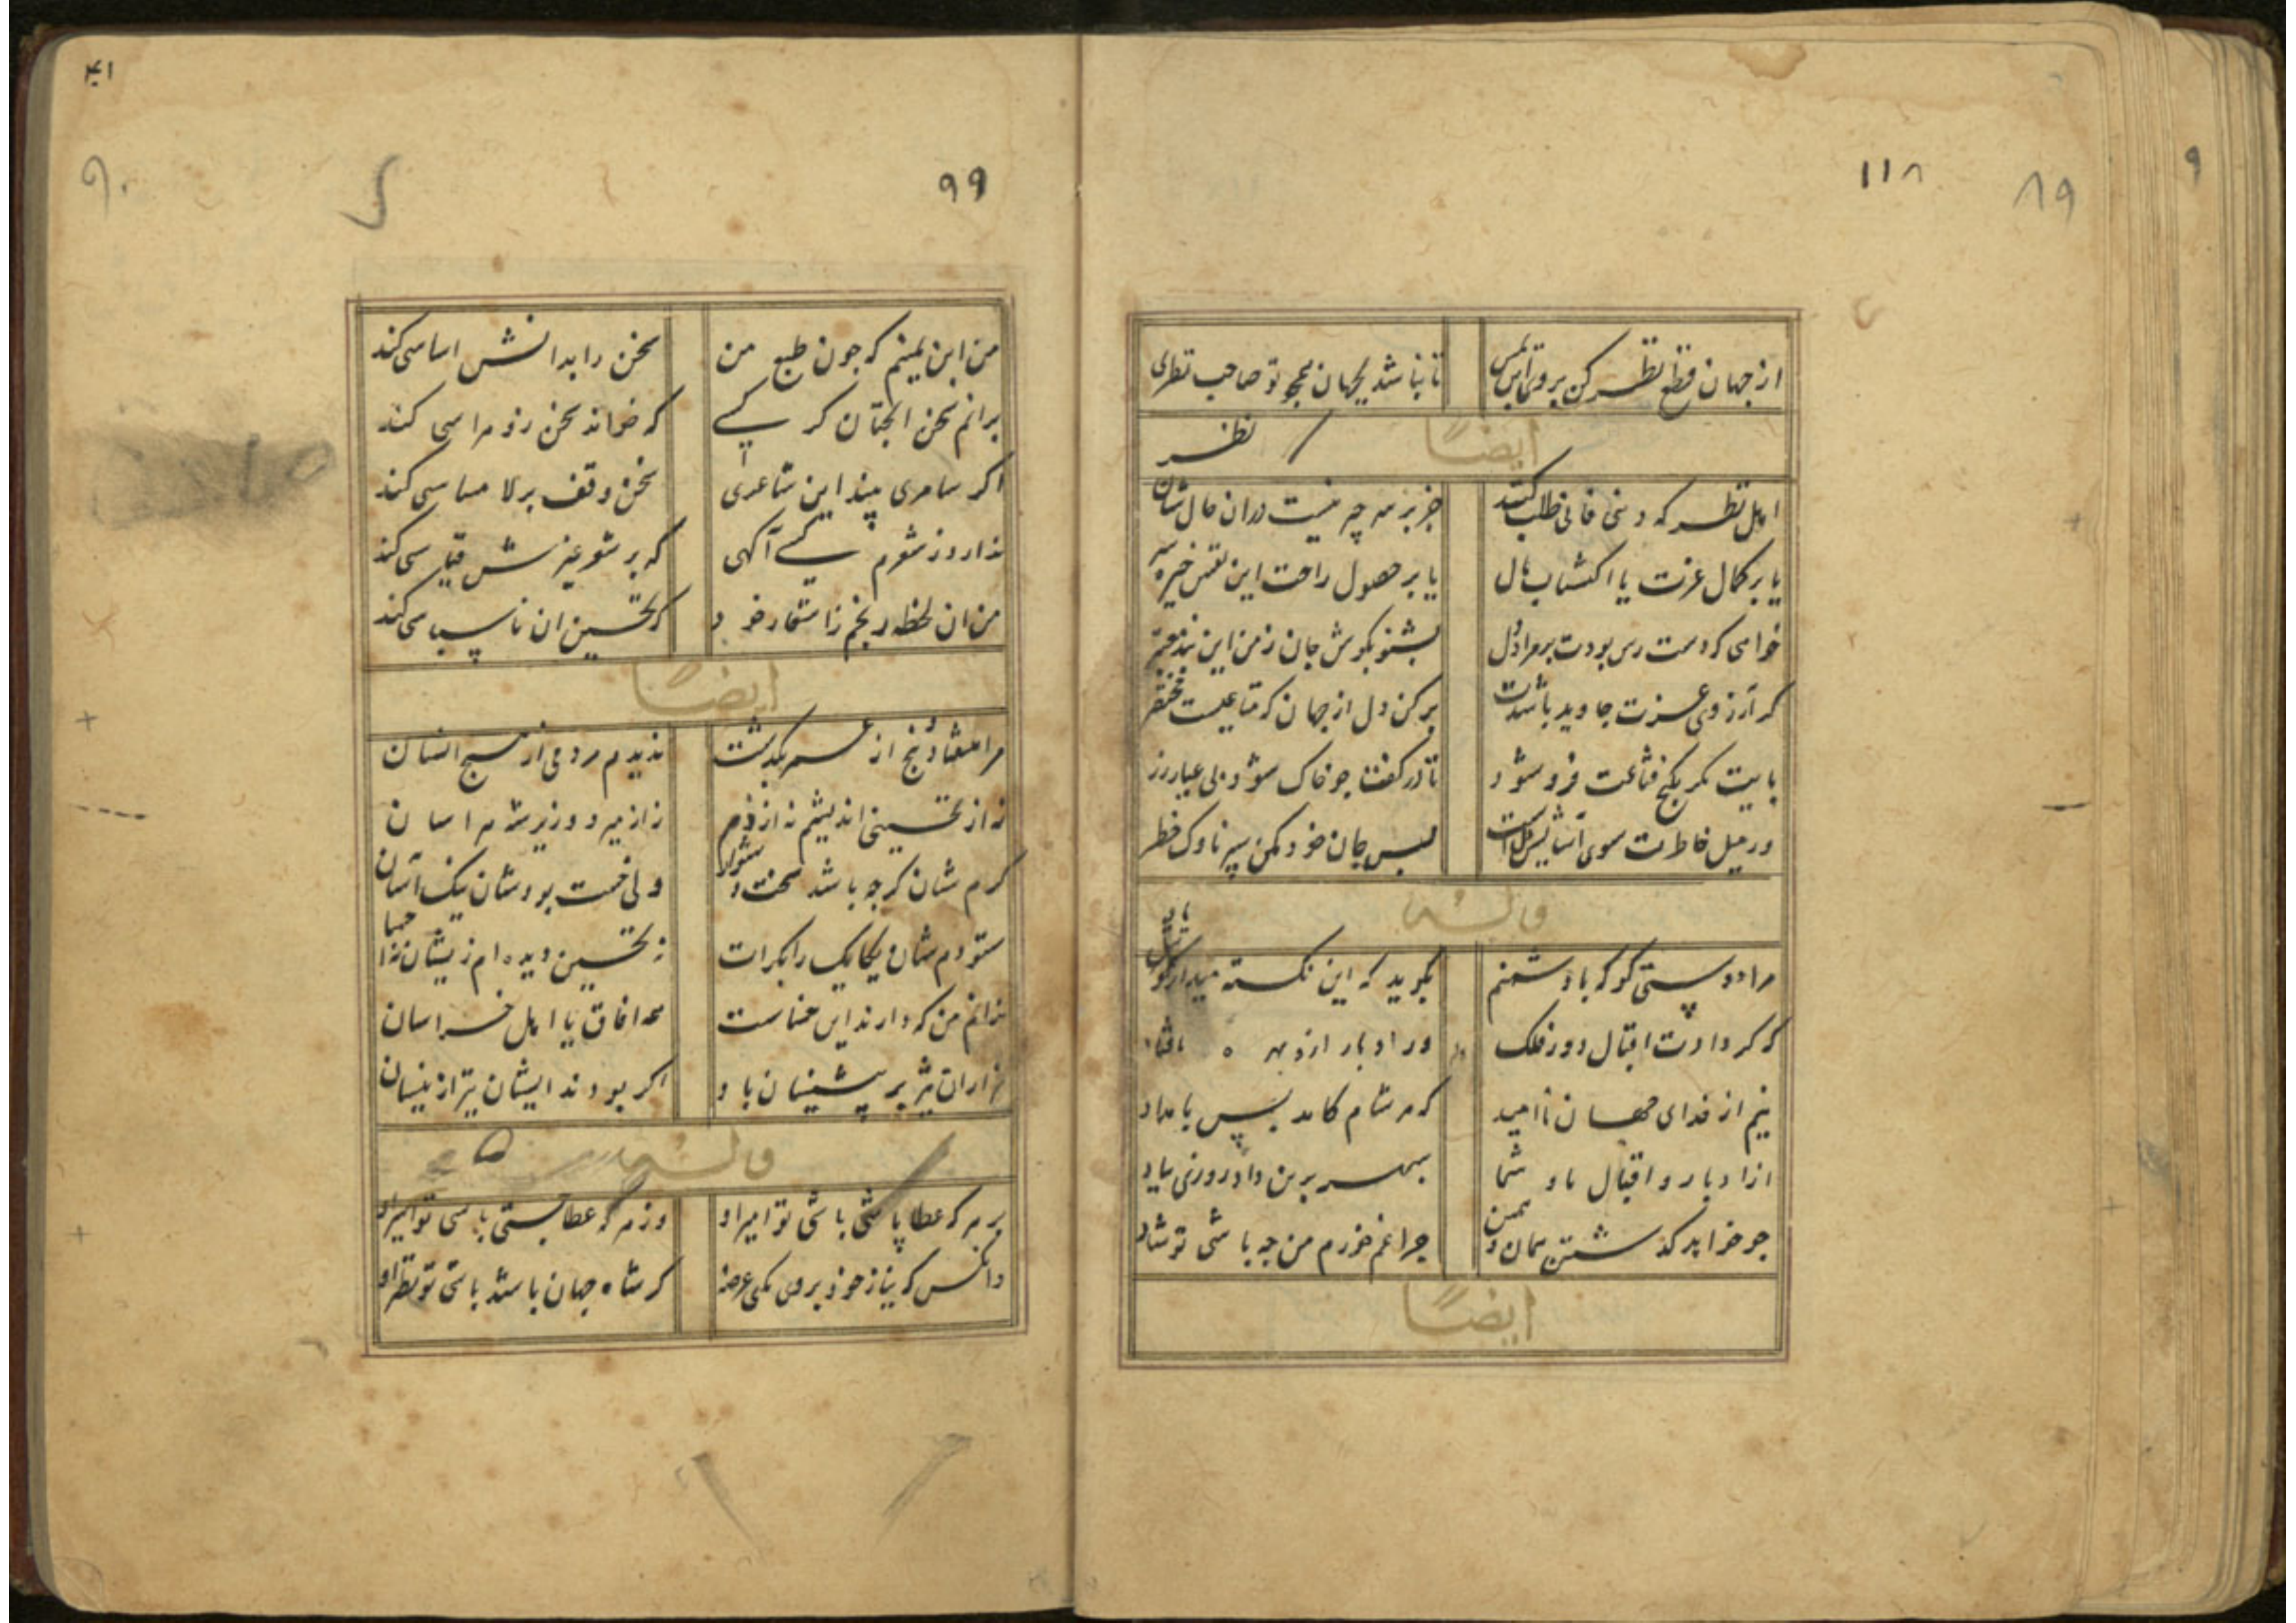 ۱۱۸
۸۹
۹
از جهان قطع نظر کن بروی ابن یمین
تا نباشد بجهان همچو تو صاحب نظری
ایضاً
نظر
اهل نظر که دنیی فانی طلب کنند
جز بر سه چیز نیست در آن حال شان
یا بر کمال عزت یا اکتساب مال
یا بر حصول راحت این نفس خیره سر
خواهی که دست رس بودت بر مراد دل
بشنو بکوش جان ز من این پند معتبر
کر آرزوی عزت جاوید باشدت
برکن دل از جهان که متاعیست مختصر
بایست مکر بکنج قناعت فرو شود
تا در کفت جو خاک شود بی عیار زر
ور میل خاطرت سوی آسایش است
بس جان خود مکن سپر ناوک خطر
و له
مرا دوستی کو که با دشمنم
بکوید که این نکته میدار یاد
که کر دادت اقبال دور فلک
ور ادبار از
نیم از خدای جهان ناامید
که هر شام کامد پس بامداد
از ادبار و اقبال ما و شما
سپهر برین داد روزی بیاد
جو خواهد کذشتن همان و همین
جرا غم خورم من جه باشی تو شاد
ایضاً
۴۱
۹۰
۹۹
من ابن یمینم که جون طبع من
سخن را بدانش اساسی کند
برانم سخن انجنان کر کسی
که خواند سخن زو هراسی کند
اکر سامری بیند این شاعری
سخن وقف بر لا مساسی کند
ندارد ز شعرم کسی آکهی
که بر شعر غیرش قیاسی کند
من ان لحظه رنجم ز اشعار خود
که تحسین ان ناسپاسی کند
ایضاً
مرا هفتاد و پنج از عمر بکذشت
ندیدم مردمی از هیچ انسان
نه از تحسینی اندیشم نه از ذم
نه از میر و وزیرستم هراسان
کرم شان کرجه باشد سخت دشوار
ولی خست بودشان نیک آسان
ستودم شان یکایک را بکرات
نه تحسین دیده ام زیشان نه احسان
ندانم من که دارند این خساست
همه افاق یا اهل خراسان
هزاران تیز بر پیشینیان باد
اکر بودند ایشان نیز ازینسان
و له
بر هر که عطا پاشی باشی تو امیر او
وز هر که عطا بستی باشی تو اسیر او
وانکس که نیاز خود بروی نکنی عرضه
کر شاه جهان باشد باشی تو نظیر او